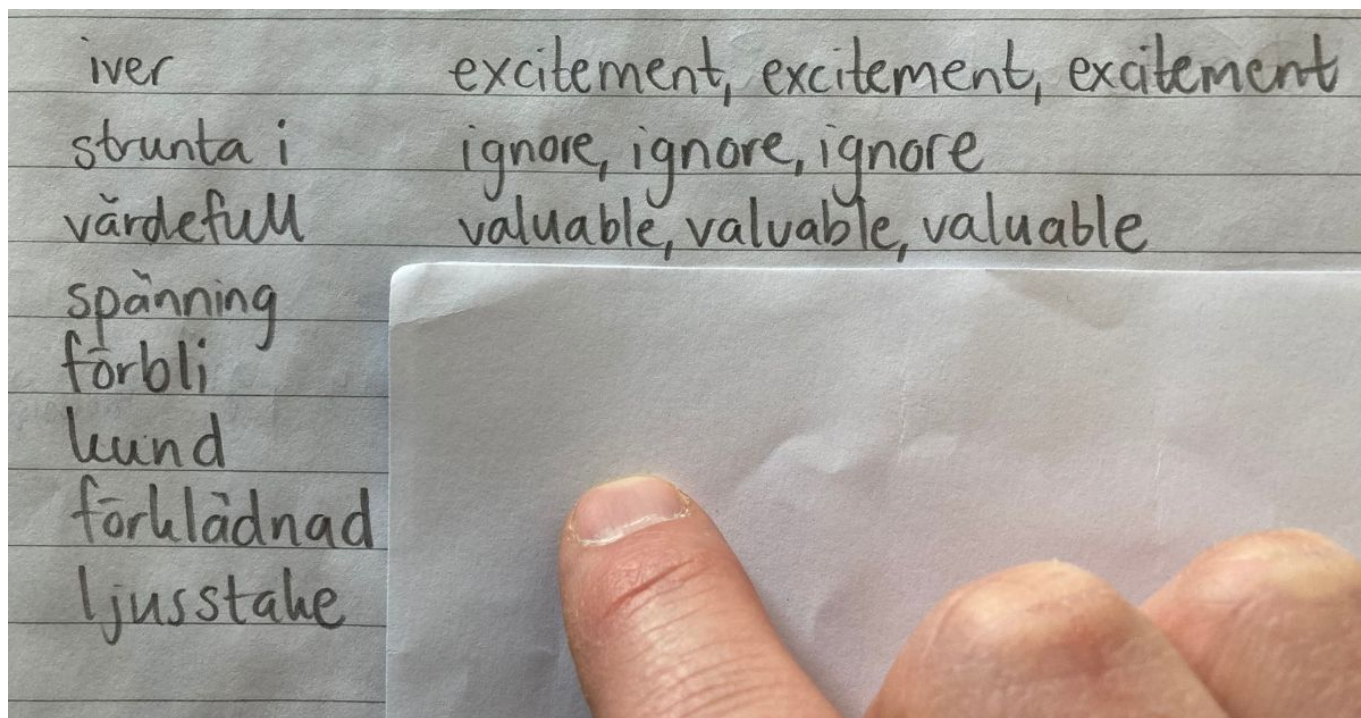 iver excitement, excitement, excitement
strunta i ignore, ignore, ignore
värdefull valuable, valuable, valuable
spänning
förbli
kund
förklädnad
ljusstake